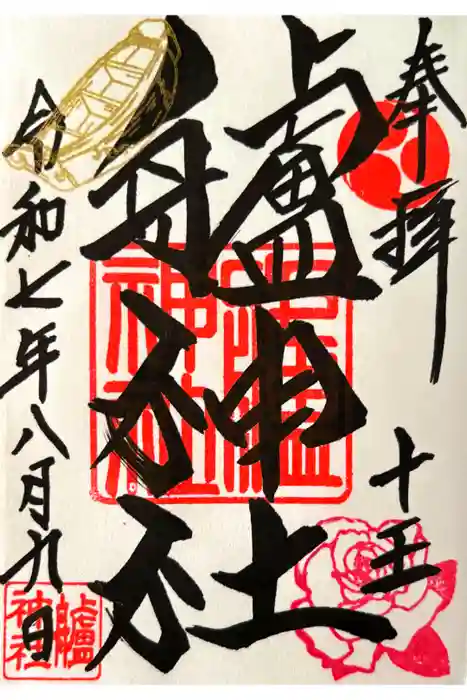 奉拝
十王
艫神社
令和七年八月九日
艫神社
艫神社